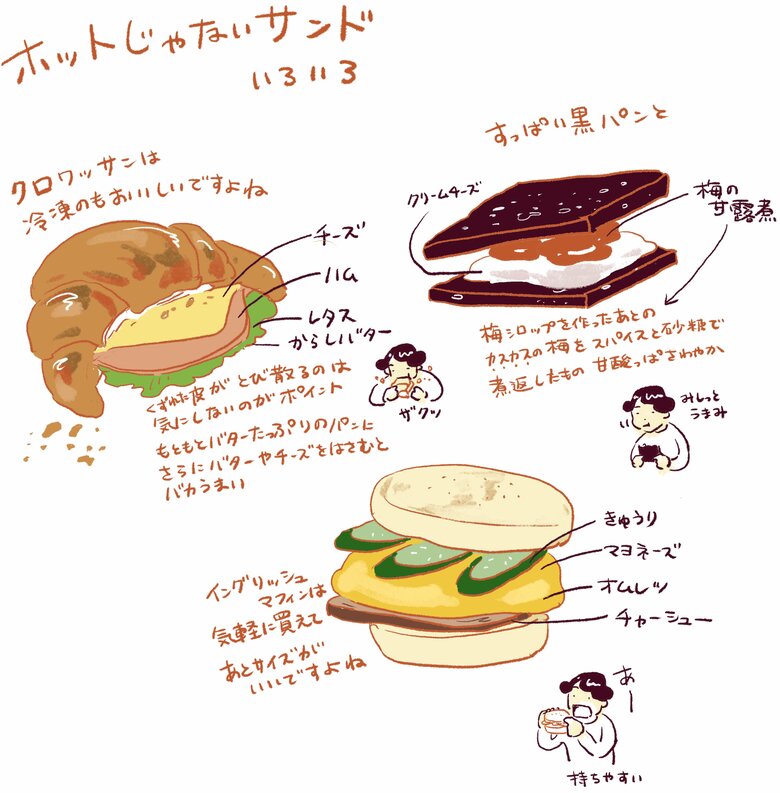 ホットじゃないサンド
いろいろ
クロワッサンは
冷凍のもおいしいですよね
チーズ
ハム
レタス
からしバター
くずれた皮がとび散るのは
気にしないのがポイント
もともとバターたっぷりのパンに
さらにバターやチーズをはさむと
バカうまい
ザクッ
すっぱい黒パンと
クリームチーズ
梅の
甘露煮
梅シロップを作ったあとの
カスカスの梅をスパイスと砂糖で
煮返したもの 甘酸っぱさわやか
みしっと
うまみ
イングリッシュ
マフィンは
気軽に買えて
あとサイズが
いいですよね
きゅうり
マヨネーズ
オムレツ
チャーシュー
あー
持ちやすい